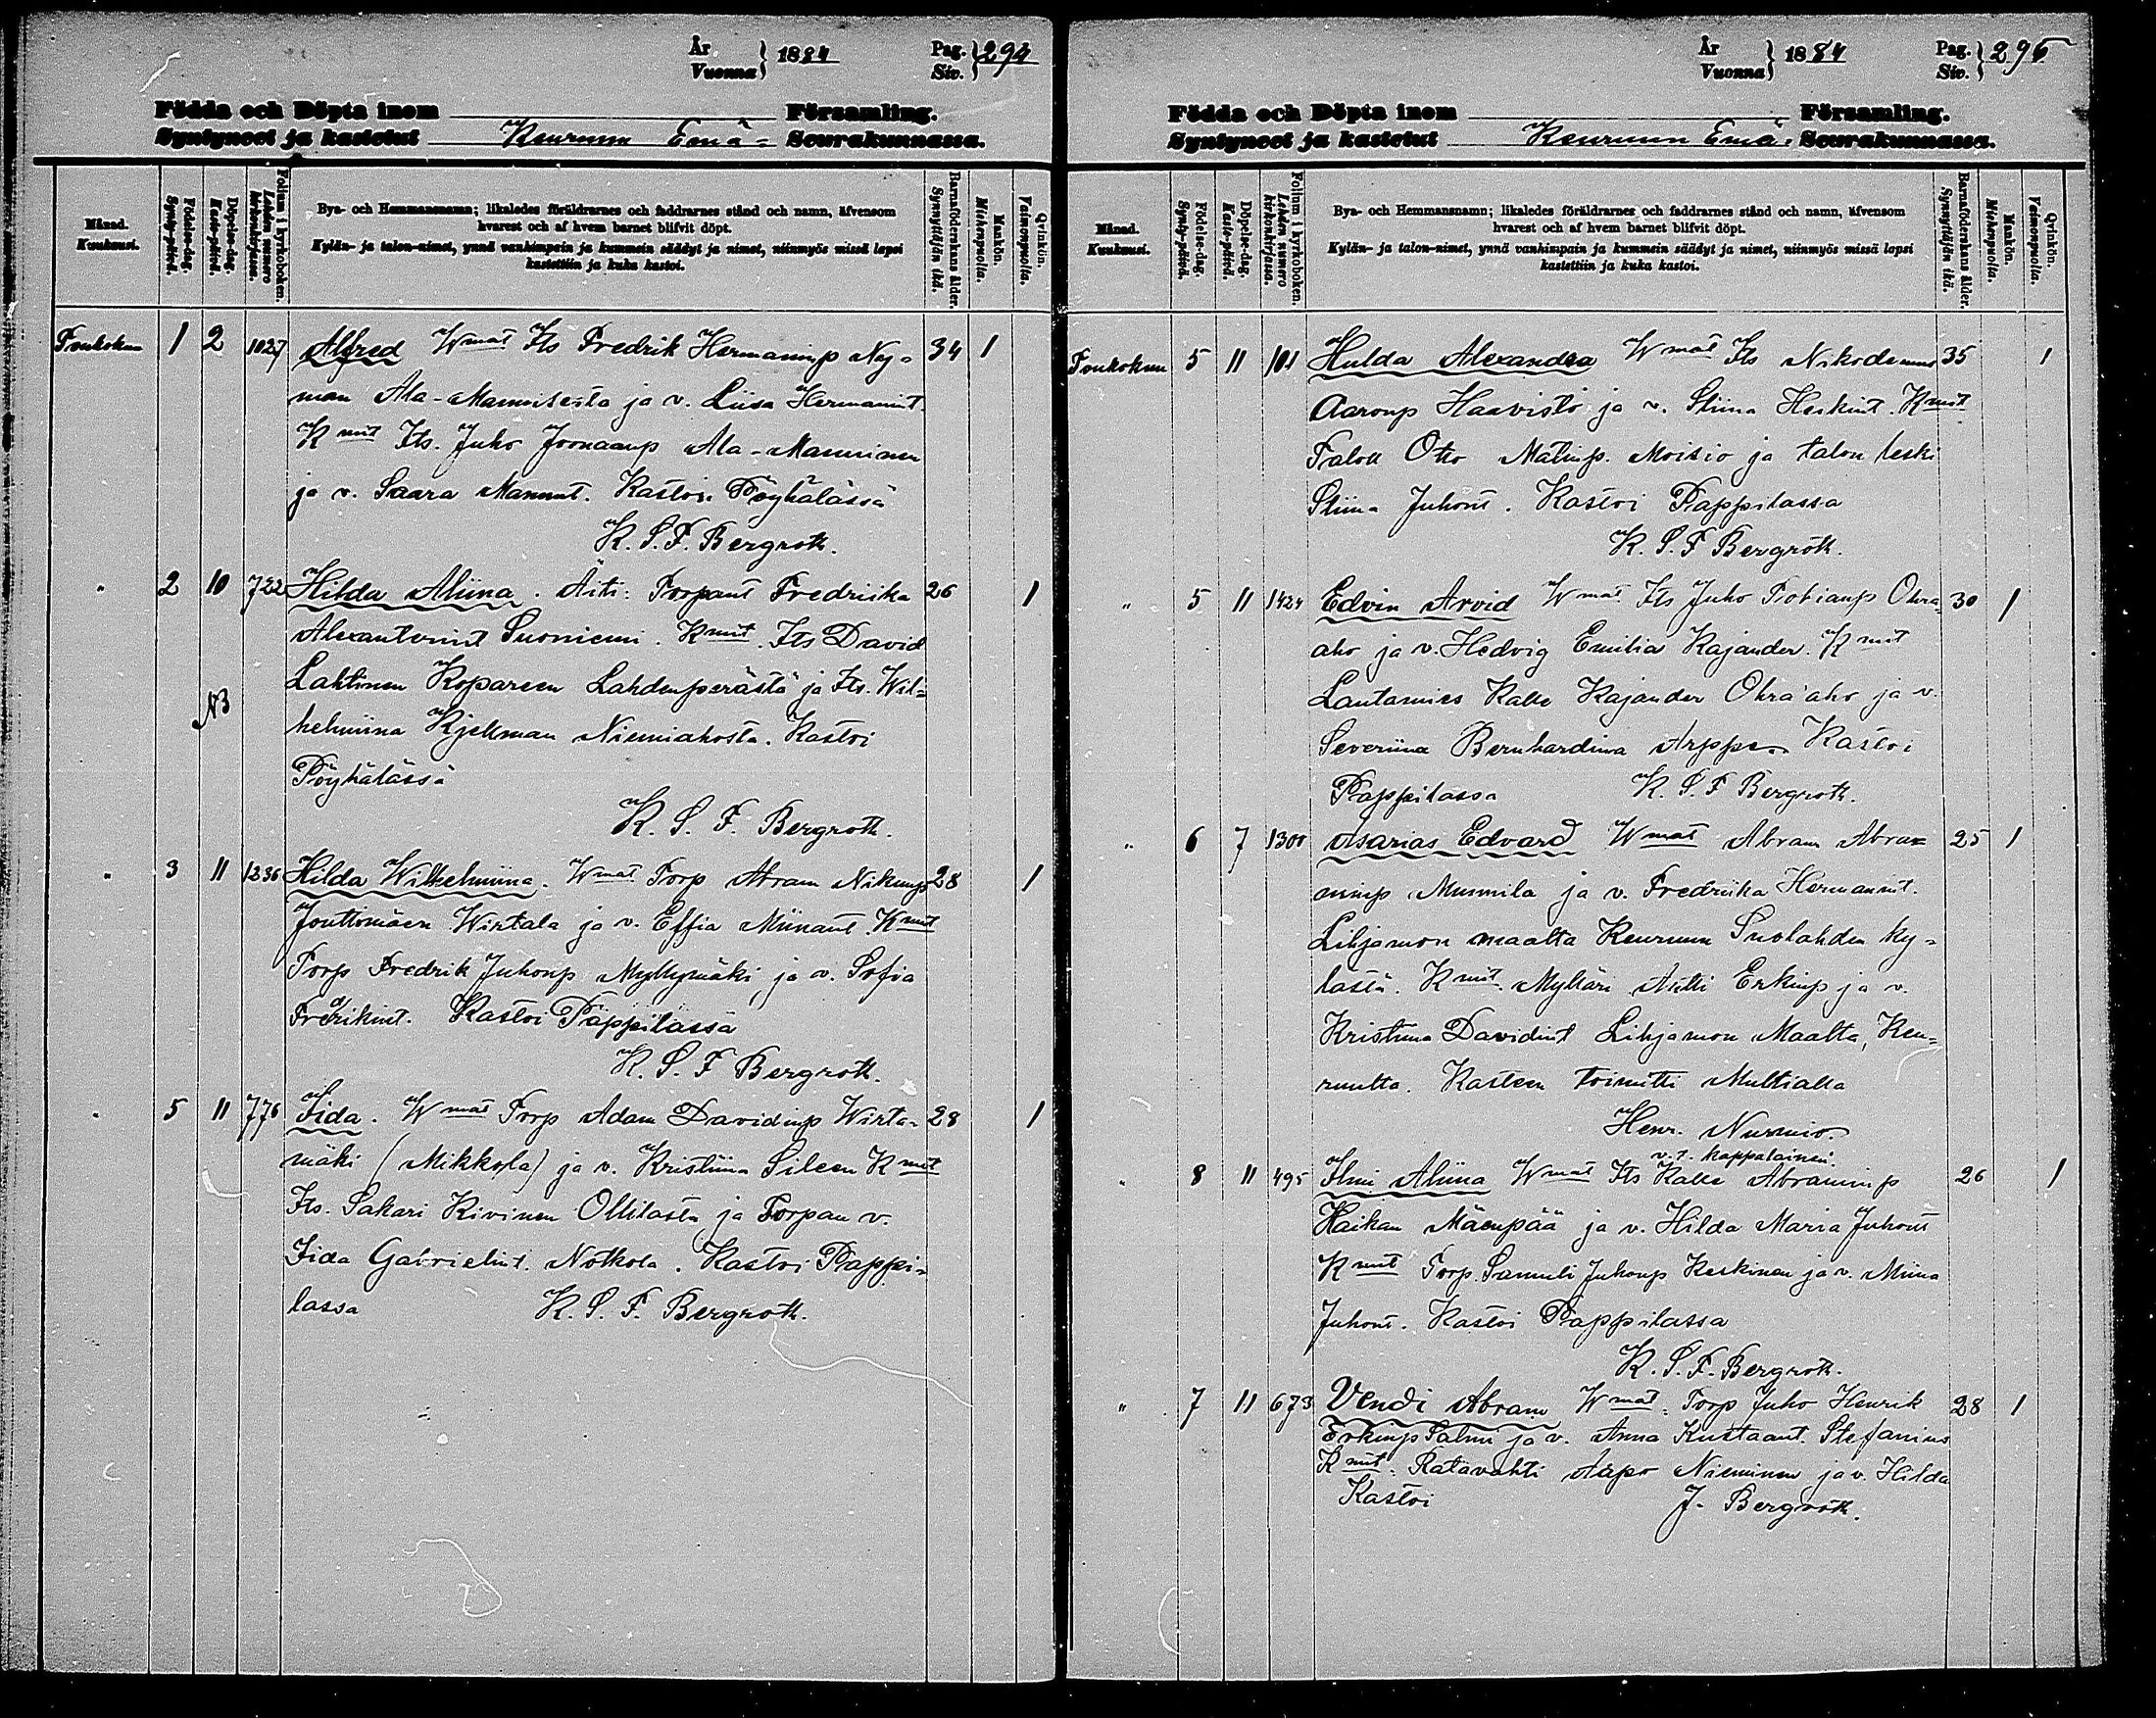 År
Vuonna } 1884
Pag.
Siv. } 294
Födda och Döpta inom Församling.
Syntyneet ja kastetut Keuruun Emä- Seurakunnassa.
Månad.
Kuukausi.
Födelse-dag.
Synty-päivä.
Döpelse-dag.
Kaste-päivä.
Folium i kyrkoboken.
Lehden numero kirkonkirjassa.
Bya- och Hemmansnamn; likaledes föräldrarnes och faddrarnes stånd och namn, äfvensom
hvarest och af hvem barnet blifvit döpt.
Kylän- ja talon-nimet, ynnä vanhimpain ja kummein säädyt ja nimet, niinmyös missä lapsi
kastettiin ja kuka kastoi.
Barnaföderskans ålder.
Synnyttäjän ikä.
Mankön.
Miehenpuolta.
Qvinkön.
Vaimonpuolta.
Toukokuu 1 2 1027 Alfred Wmat Its Fredrik Hermaninp Ny= 34 1
man Ala-Mannisesta ja v. Liisa Hermanint.
Kmit Its. Juho Joonaanp Ala-Manninen
ja v. Saara Mannut. Kastoi Pöyhälässä
K. S. F. Bergroth.
" 2 10 722 Hilda Aliina. Äiti: Torpant Fredriika 26 1
Alexanterint Suoniemi. Kmit. Its David
Lahtinen Kopareen Lahdenperästä ja Its. Wil=
NB
helmiina Kjellman Niemiahosta. Kastoi
Pöyhälässä
K. S. F. Bergroth.
" 3 11 1236 Hilda Wilhelmiina. Wmat Torp Abram Nikunp 28 1
Jouttimäen Wirtala ja v. Effia Miinant. Kmit
Torp Fredrik Juhonp Myllymäki ja v. Sofia
Fredrikint. Kastoi Pappilassa
K. S. F Bergroth.
" 5 11 776 Iida. Wmat Torp Adam Davidinp Wirta- 28 1
mäki (Mikkola) ja v. Kristiina Sileen Kmit
Its. Sakari Kivinen Ollilasta ja Torpan v.
Iida Gabrielint. Notkola. Kastoi Pappi=
lassa K. S. F. Bergroth.
År
Vuonna } 1884
Pag.
Siv. } 295
Födda och Döpta inom Församling.
Syntyneet ja kastetut Keuruun Emä- Seurakunnassa.
Månad.
Kuukausi.
Födelse-dag.
Synty-päivä.
Döpelse-dag.
Kaste-päivä.
Folium i kyrkoboken.
Lehden numero kirkonkirjassa.
Bya- och Hemmansnamn; likaledes föräldrarnes och faddrarnes stånd och namn, äfvensom
hvarest och af hvem barnet blifvit döpt.
Kylän- ja talon-nimet, ynnä vanhimpain ja kummein säädyt ja nimet, niinmyös missä lapsi
kastettiin ja kuka kastoi.
Barnaföderskans ålder.
Synnyttäjän ikä.
Mankön.
Miehenpuolta.
Qvinkön.
Vaimonpuolta.
Toukokuu 5 11 101 Hulda Alexandra Wmat Its Nikodemus 35 1
Aaronp Haavisto ja v. Stiina Heskint. Kmit
Talou Otto Matinp. Moisio ja talon leski
Stiina Juhont. Kastoi Pappilassa
K. S. F Bergroth.
" 5 11 1424 Edvin Arvid Wmat Its Juho Tobianp Ohra= 30 1
aho ja v. Hedvig Emilia Kajander. Kmit
Lautamies Kalle Kajander Ohra'aho ja v.
Severiina Bernhardina Kastoi
Pappilassa K. S. F Bergroth.
" 6 7 1300 Asarias Edvard Wmat Abram Abra= 25 1
minp Mummila ja v. Fredriika Hermannint.
Lihjamon maalta Keuruun Suolahden ky=
lästä. Kmit. Mylläri Antti Erkinp ja v.
Kristiina Davidint Lihjamon Maalta, Keu=
ruulta. Kasteen toimitti Multialla
Henr. Nurmio.
v.t. kappalainen.
" 8 11 495 Ilmi Aliina Wmat Its Kalle Abraminp 26 1
Haikan Mäenpää ja v. Hilda Maria Juhont
Kmit Torp. Samuli Juhonp Keskinen ja v. Miina
Juhont. Kastoi Pappilassa
K. S. F. Bergroth.
" 7 11 673 Vendi Abram Wmat. Torp Juho Henrik 28 1
Erkinp Salmi ja v. Anna Kustaant. Stefanius
Kmit. Ratavahti Aapo Nieminen ja v. Hilda
Kastoi J. Bergroth.